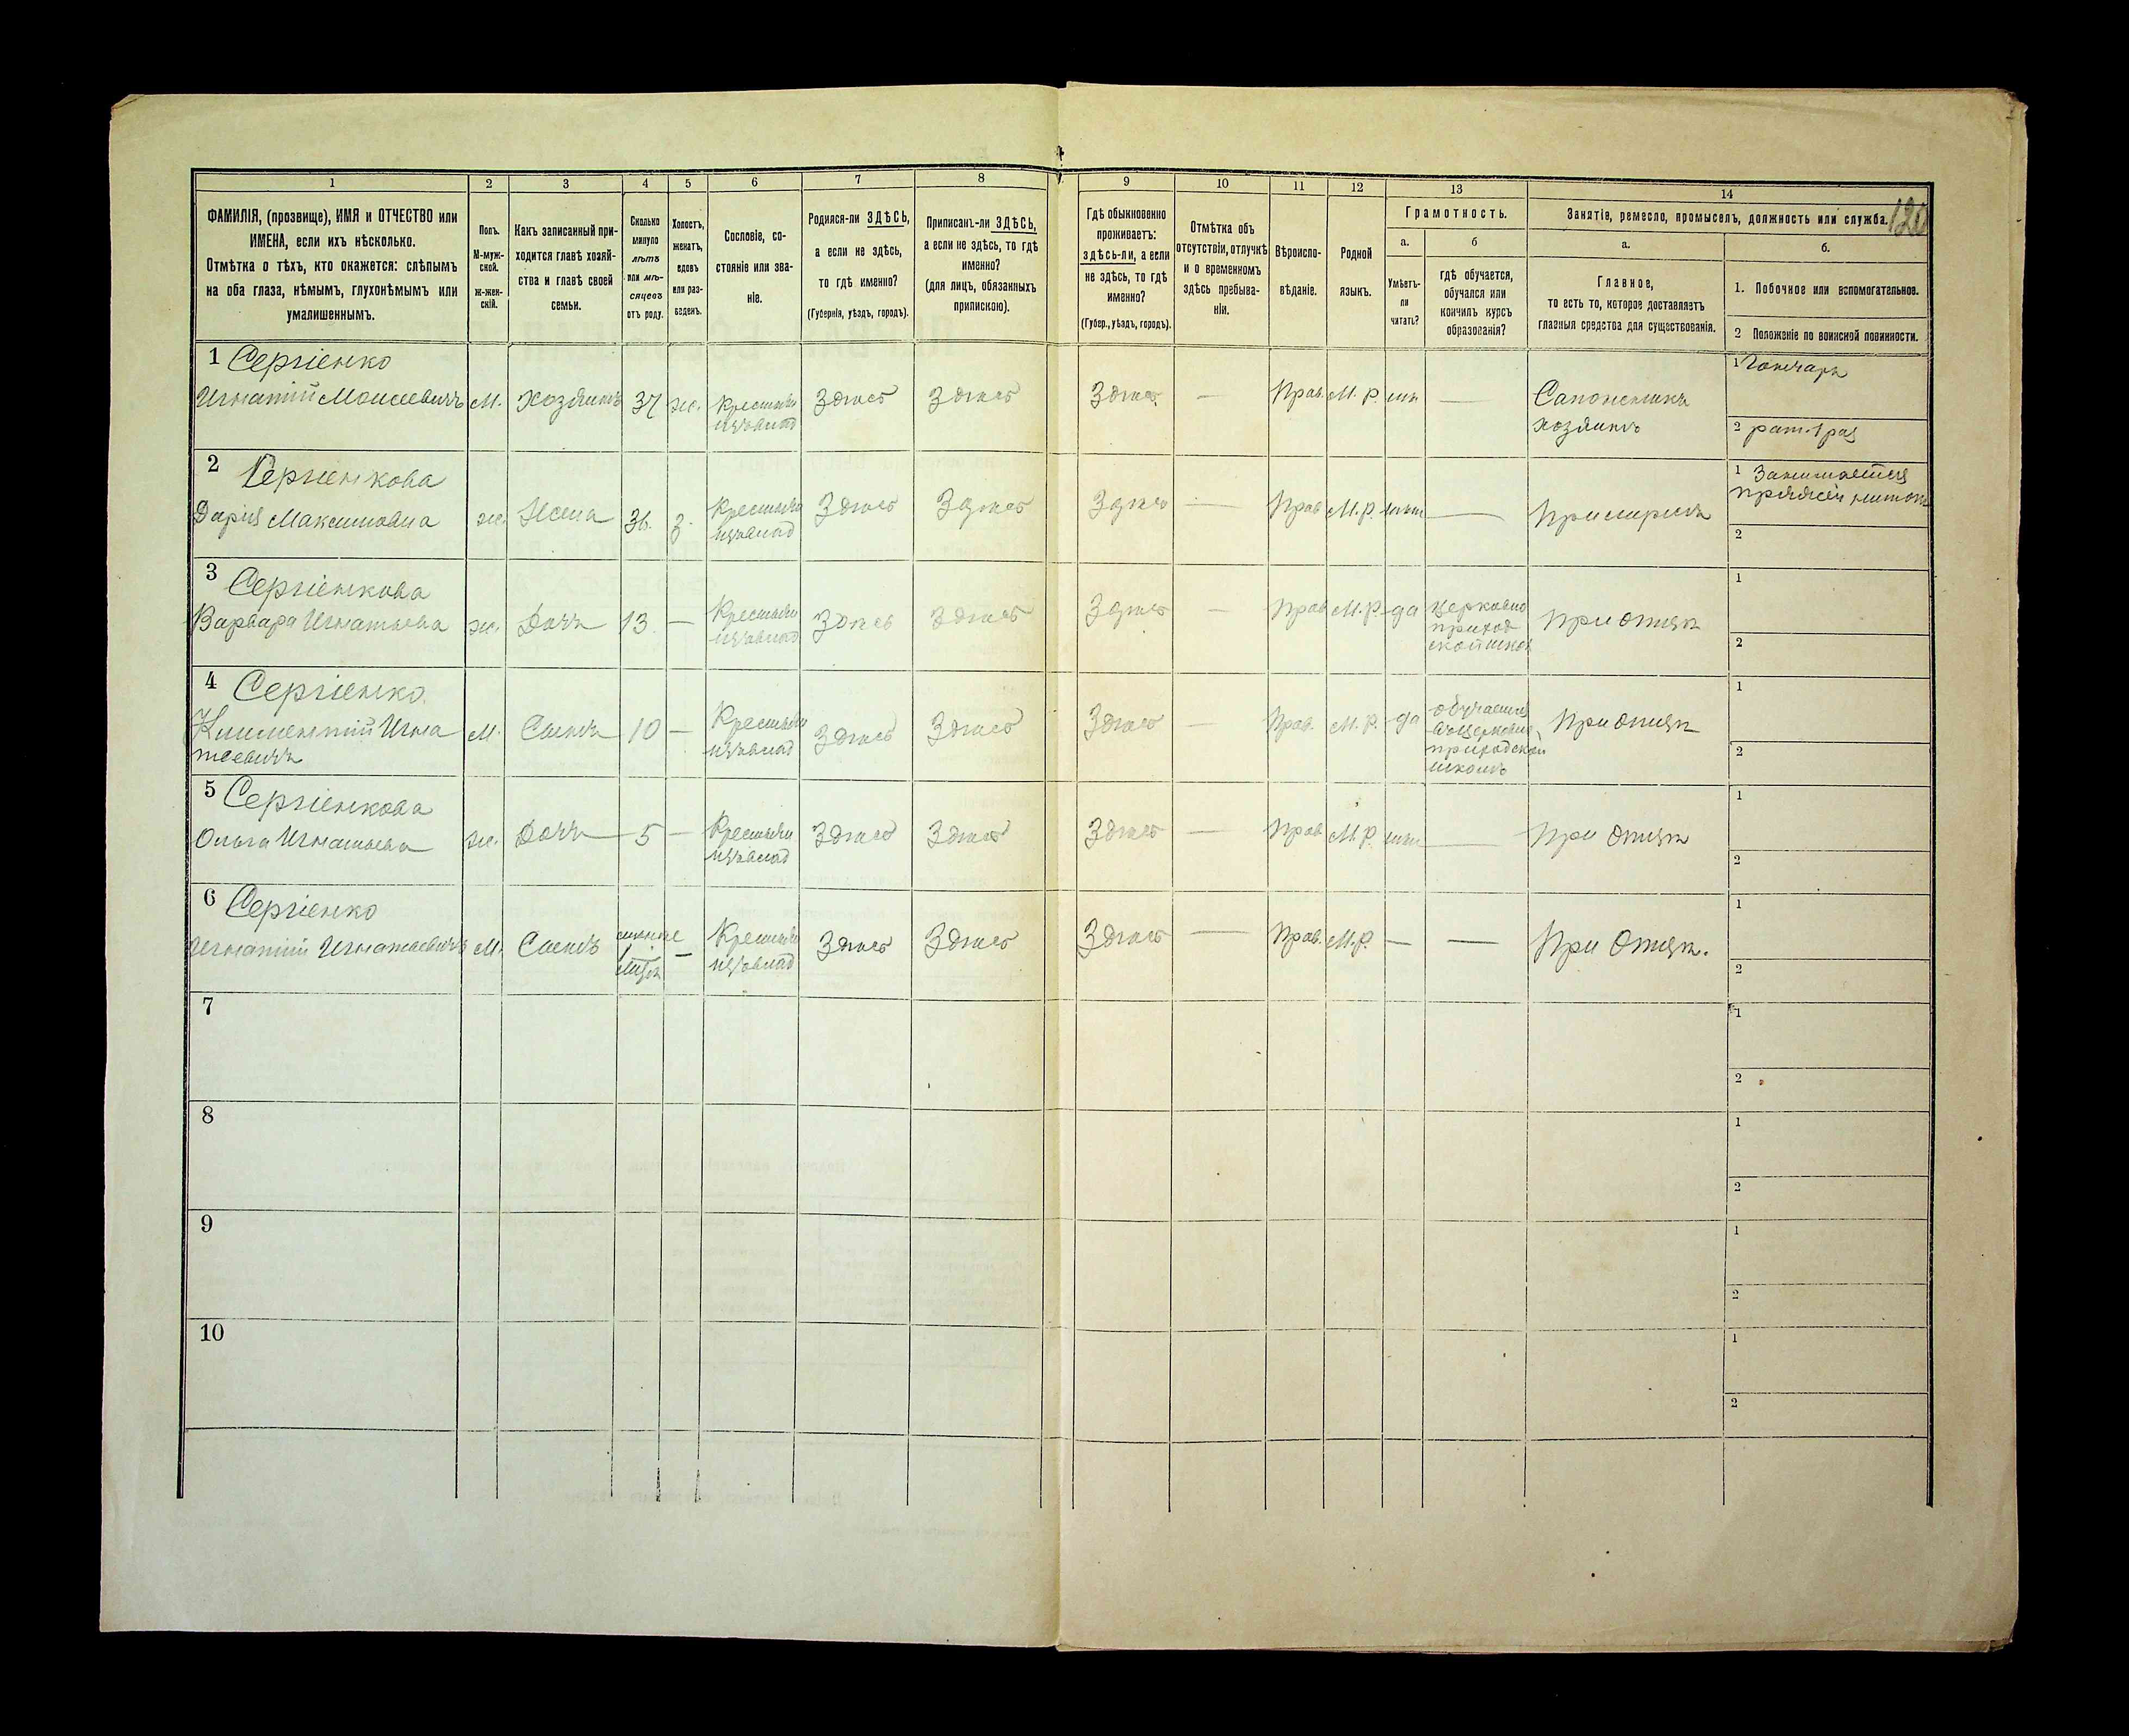 1
2
3
4
5
6
7
8
9
10
11
12
13
14
120
ФАМИЛІЯ, (прозвище), ИМЯ и ОТЧЕСТВО или
ИМЕНА, если ихъ нѣсколько.
Отмѣтка о тѣхъ, кто окажется: слѣпымъ
на оба глаза, нѣмымъ, глухонѣмымъ или
умалишеннымъ.
Полъ.
М-муж-
ской.
ж-жен-
скій.
Какъ записанный при-
ходится главѣ хозяй-
ства и главѣ своей
семьи.
Сколько
минуло
лѣтъ
или мѣ-
сяцевъ
отъ роду.
Холостъ,
женатъ,
вдовъ
или раз-
веденъ.
Сословіе, со-
стояніе или зва-
ніе.
Родился-ли ЗДѢСЬ,
а если не здѣсь,
то гдѣ именно?
(Губернія, уѣздъ, городъ).
Приписанъ-ли ЗДѢСЬ,
а если не здѣсь, то гдѣ
именно?
(для лицъ, обязанныхъ
припискою).
Гдѣ обыкновенно
проживаетъ:
здѣсь-ли, а если
не здѣсь, то гдѣ
именно?
(Губер., уѣздъ, городъ).
Отмѣтка объ
отсутствіи, отлучкѣ
и о временномъ
здѣсь пребыва-
ніи.
Вѣроиспо-
вѣданіе.
Родной
языкъ.
Грамотность.
а.
Умѣетъ-
ли
читать?
б
гдѣ обучается,
обучался или
кончилъ курсъ
образованія?
Занятіе, ремесло, промыселъ, должность или служба.
а.
Главное,
то есть то, которое доставляетъ
главныя средства для существованія.
б.
1. Побочное или вспомогательное.
2 Положеніе по воинской повинности.
1 Сергіенко
Игнатій Моисеевичъ М. хозяинъ 37 ж. Крестьян Здѣсь Здѣсь Здѣсь — Прав. М. Р. —
Сапожникъ
хозяинъ
1 Гончаръ
2 рат. 1 раз
2 Сергіенкова
Дарія Максимовна ж. Жена 36. з. Крестьян Здѣсь Здѣсь Здѣсь — Прав М. Р. —
1 Занимается
пряжей
2
3 Сергіенкова
Варвара Игнатьева ж. Дочь 13 — Крестьян Здѣсь Здѣсь Здѣсь — Прав М. Р. да
церковно
приход
ской школ
при отцѣ
1
2
4 Сергіенко
Климентій Игна
тьевичъ
М. Сынъ 10 — Крестьян Здѣсь Здѣсь Здѣсь — Прав. М. Р. да
обучается
въ церковно
приходской
школѣ
При отцѣ
1
2
5 Сергіенкова
Ольга Игнатьева ж. Дочь 5 — Крестьян Здѣсь Здѣсь Здѣсь — Прав М. Р. — При отцѣ
1
2
6 Сергіенко
Игнатій Игнатьевичъ М. Сынъ
менше
1
— Крестьян Здѣсь Здѣсь Здѣсь — Прав. М. Р. — — При Отцѣ.
1
2
7
1
2
8
1
2
9
1
2
10
1
2